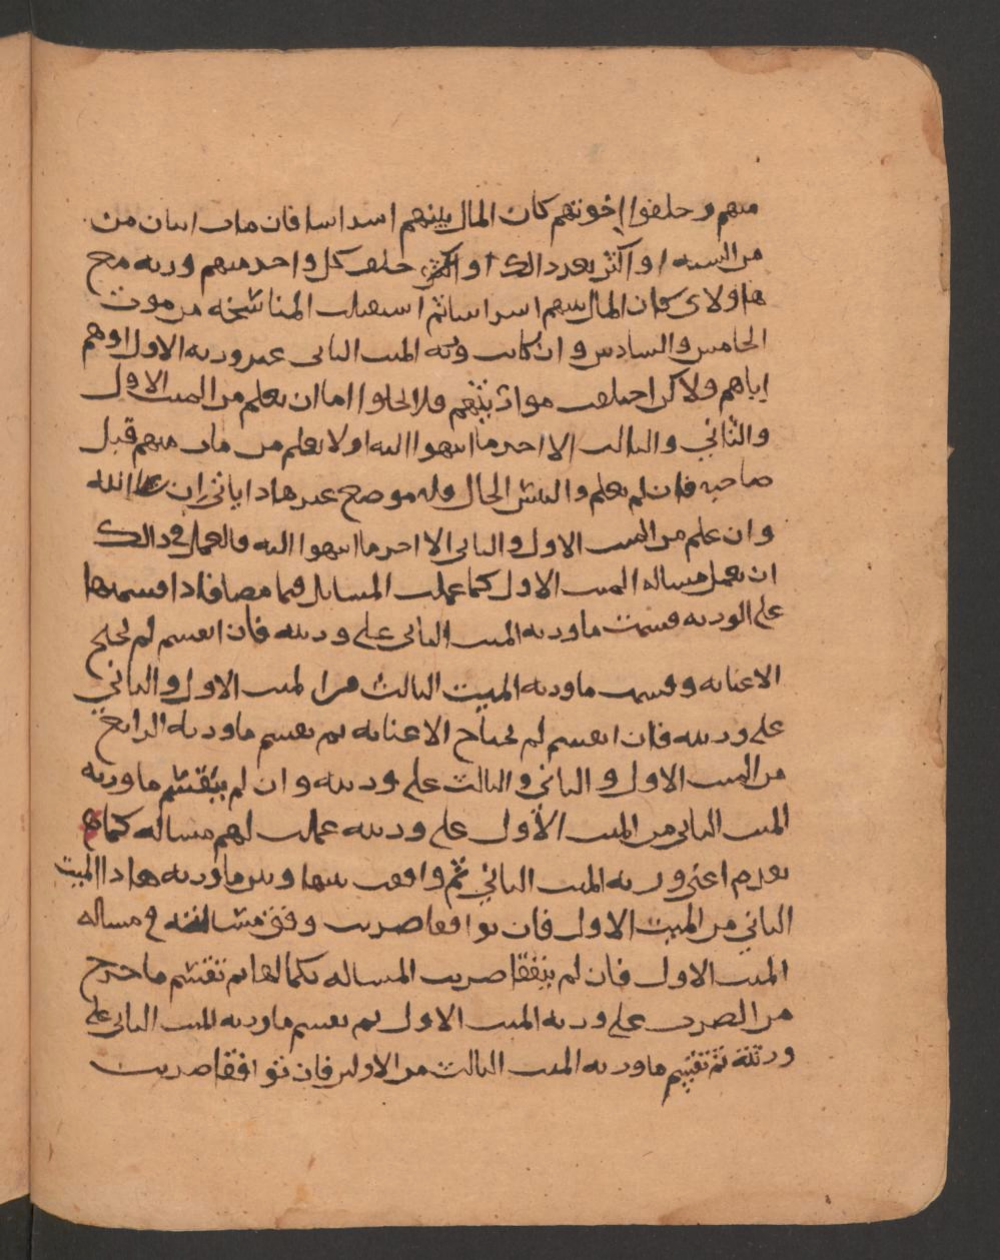 منهم وخلفوا اخوتهم كان المال بينهم اسداسا فان مات اثنان من
من السته او اكثر بعد ذالك او اكثر خلف كل واحد منهم ورثه مع
هاولاى كان المال بينهم اسداسا ثم استعملت المناسخه من موت
الخامس والسادس وان كانت ورثه الميت الثانى غير ورثه الاول او هم
اياهم ولاكن اختلفت مواريثهم فلا يخلوا اما ان يعلم من الميت الاول
والثاني والثالث الا اخر ما انتهوا اليه او لا يعلم من مات منهم قبل
صاحبه فان لم يعلم والتبس الحال وله موضع غير هاذا ياتى ان شا الله
وان علم من الميت الاول والثانى الا اخر ما انتهوا اليه فالعمل فى ذالك
ان تعمل مساله الميت الاول كما عملت المسايل فيما مضا فاذا قسمتها
على الورثه قسمت ما ورثه الميت الثانى على ورثته فان انقسم لم يحتج
الا عنايه وقسمت ما ورثه الميت الثالث من الميت الاول والثاني
على ورثته فان انقسم لم يحتاج الا عنايه ثم تقسم ما ورثه الرابع
من الميت الاول والثاني والثالث على ورثته وان لم ينقسم ما ورثه
الميت الثانى من الميت الاول على ورثته عملت لهم مساله كما
تقدم اعنى ورثه الميت الثاني ثم وافقت بينها وبين ما ورثه هاذا الميت
الثاني من الميت الاول فان توافقا ضربت وفق مسالته فى مساله
الميت الاول فان لم يتفقا ضربت المساله بكمالها ثم تقسم ما خرج
من الضرب على ورثه الميت الاول ثم تقسم ما ورثه الميت الثانى على
ورثته ثم تقسم ما ورثه الميت الثالث من الاولين فان توافقا ضربت